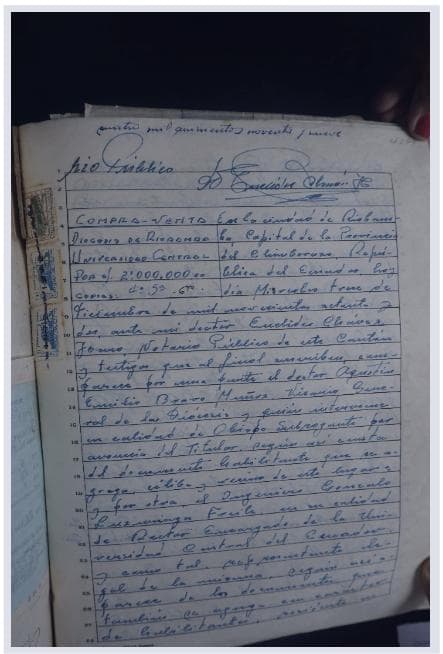 cuatro mil quinientos noventa y nueve
rio Público
COMPRA-VENTA En la ciudad de Riobam-
DIOCESIS DE RIOBAMBA ba, Capital de la Provincia
UNIVERSIDAD CENTRAL del Chimborazo, Repú-
POR S/ 2'000.000,00 blica del Ecuador, hoy
COPIAS: 4ª 5ª 6ª día Miércoles trece de
Diciembre de mil novecientos setenta y
dos, ante mi doctor Euclides Chávez
Notario Público de este Cantón
y testigos que al final suscriben, com-
parece por una parte el doctor Agustín
Emilio Bravo Muñoz, Vicario Gene-
ral de la Diócesis y quien interviene
en calidad de Obispo Subrogante por
ausencia del Titular, según así consta
del documento habilitante que se a-
grega, célibe y vecino de este lugar
y por otra, el Ingeniero Gonzalo
en su calidad
de Rector Encargado de la Uni-
versidad Central del Ecuador
y como tal, representante le-
gal de la misma, según así a-
parece de los documentos que
también se agrega en carácter
de habilitantes,